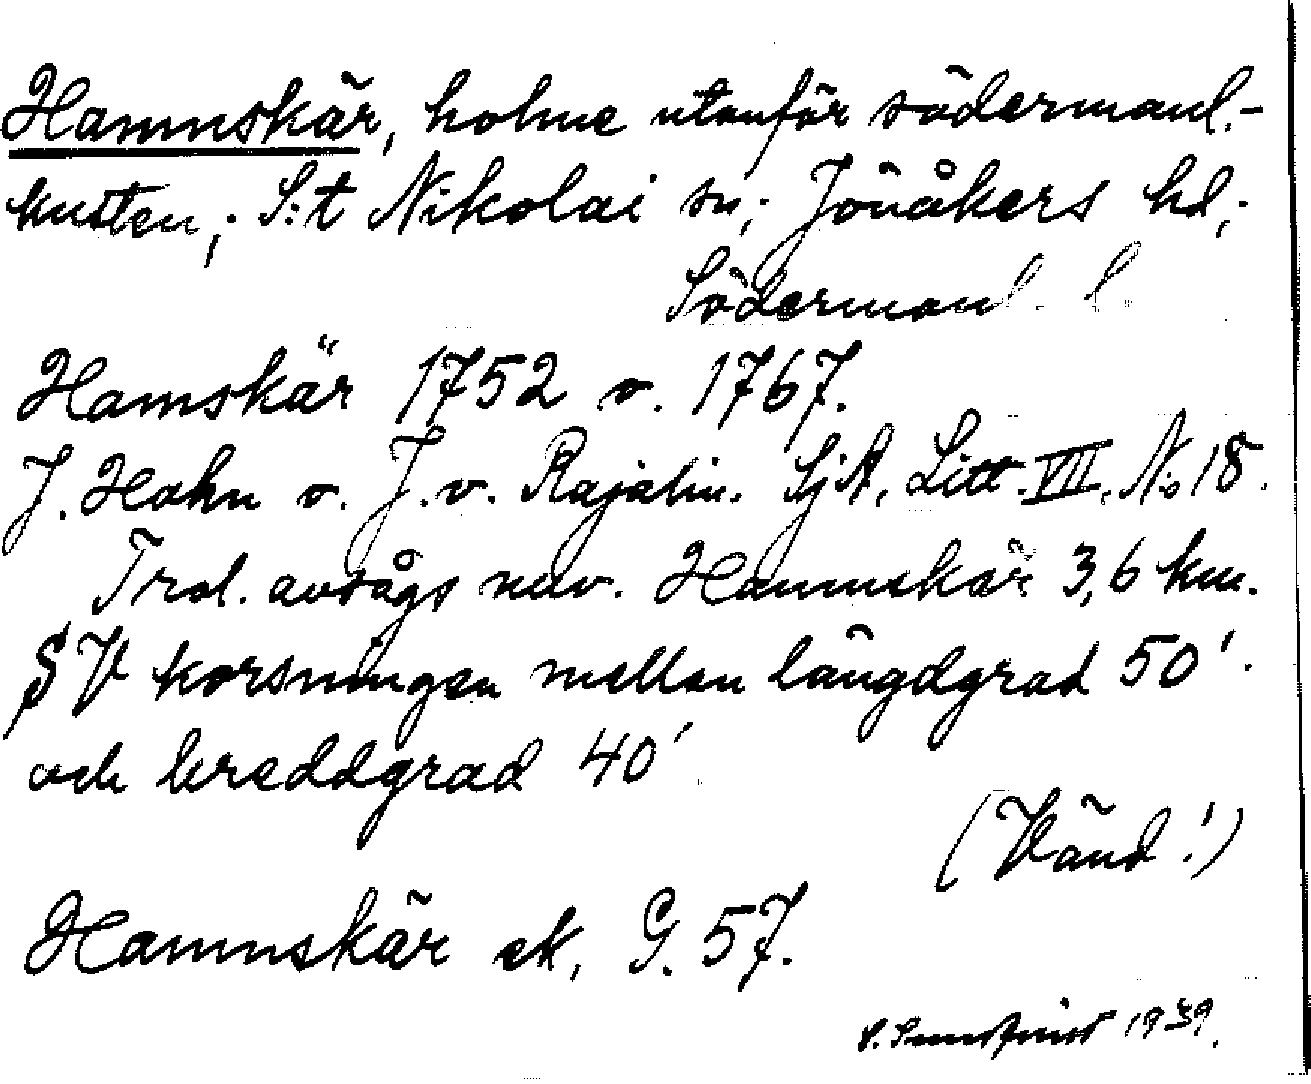 Hamnskär, holme utanför södermanl.-
kusten; S:t Nikolai sn; Jönåkers hd;
Södermanl. l.
Hamskär 1752 o. 1767.
J. Hahn o. J. v. Rajalin. SjA, Litt. VII, No 18.
Trol. avsågs nuv. Hamnskär 3,6 km.
SV korsningen mellan längdgrad 50'
och breddgrad 40'
(Vänd!)
Hamnskär ek, G. 57.
1939.